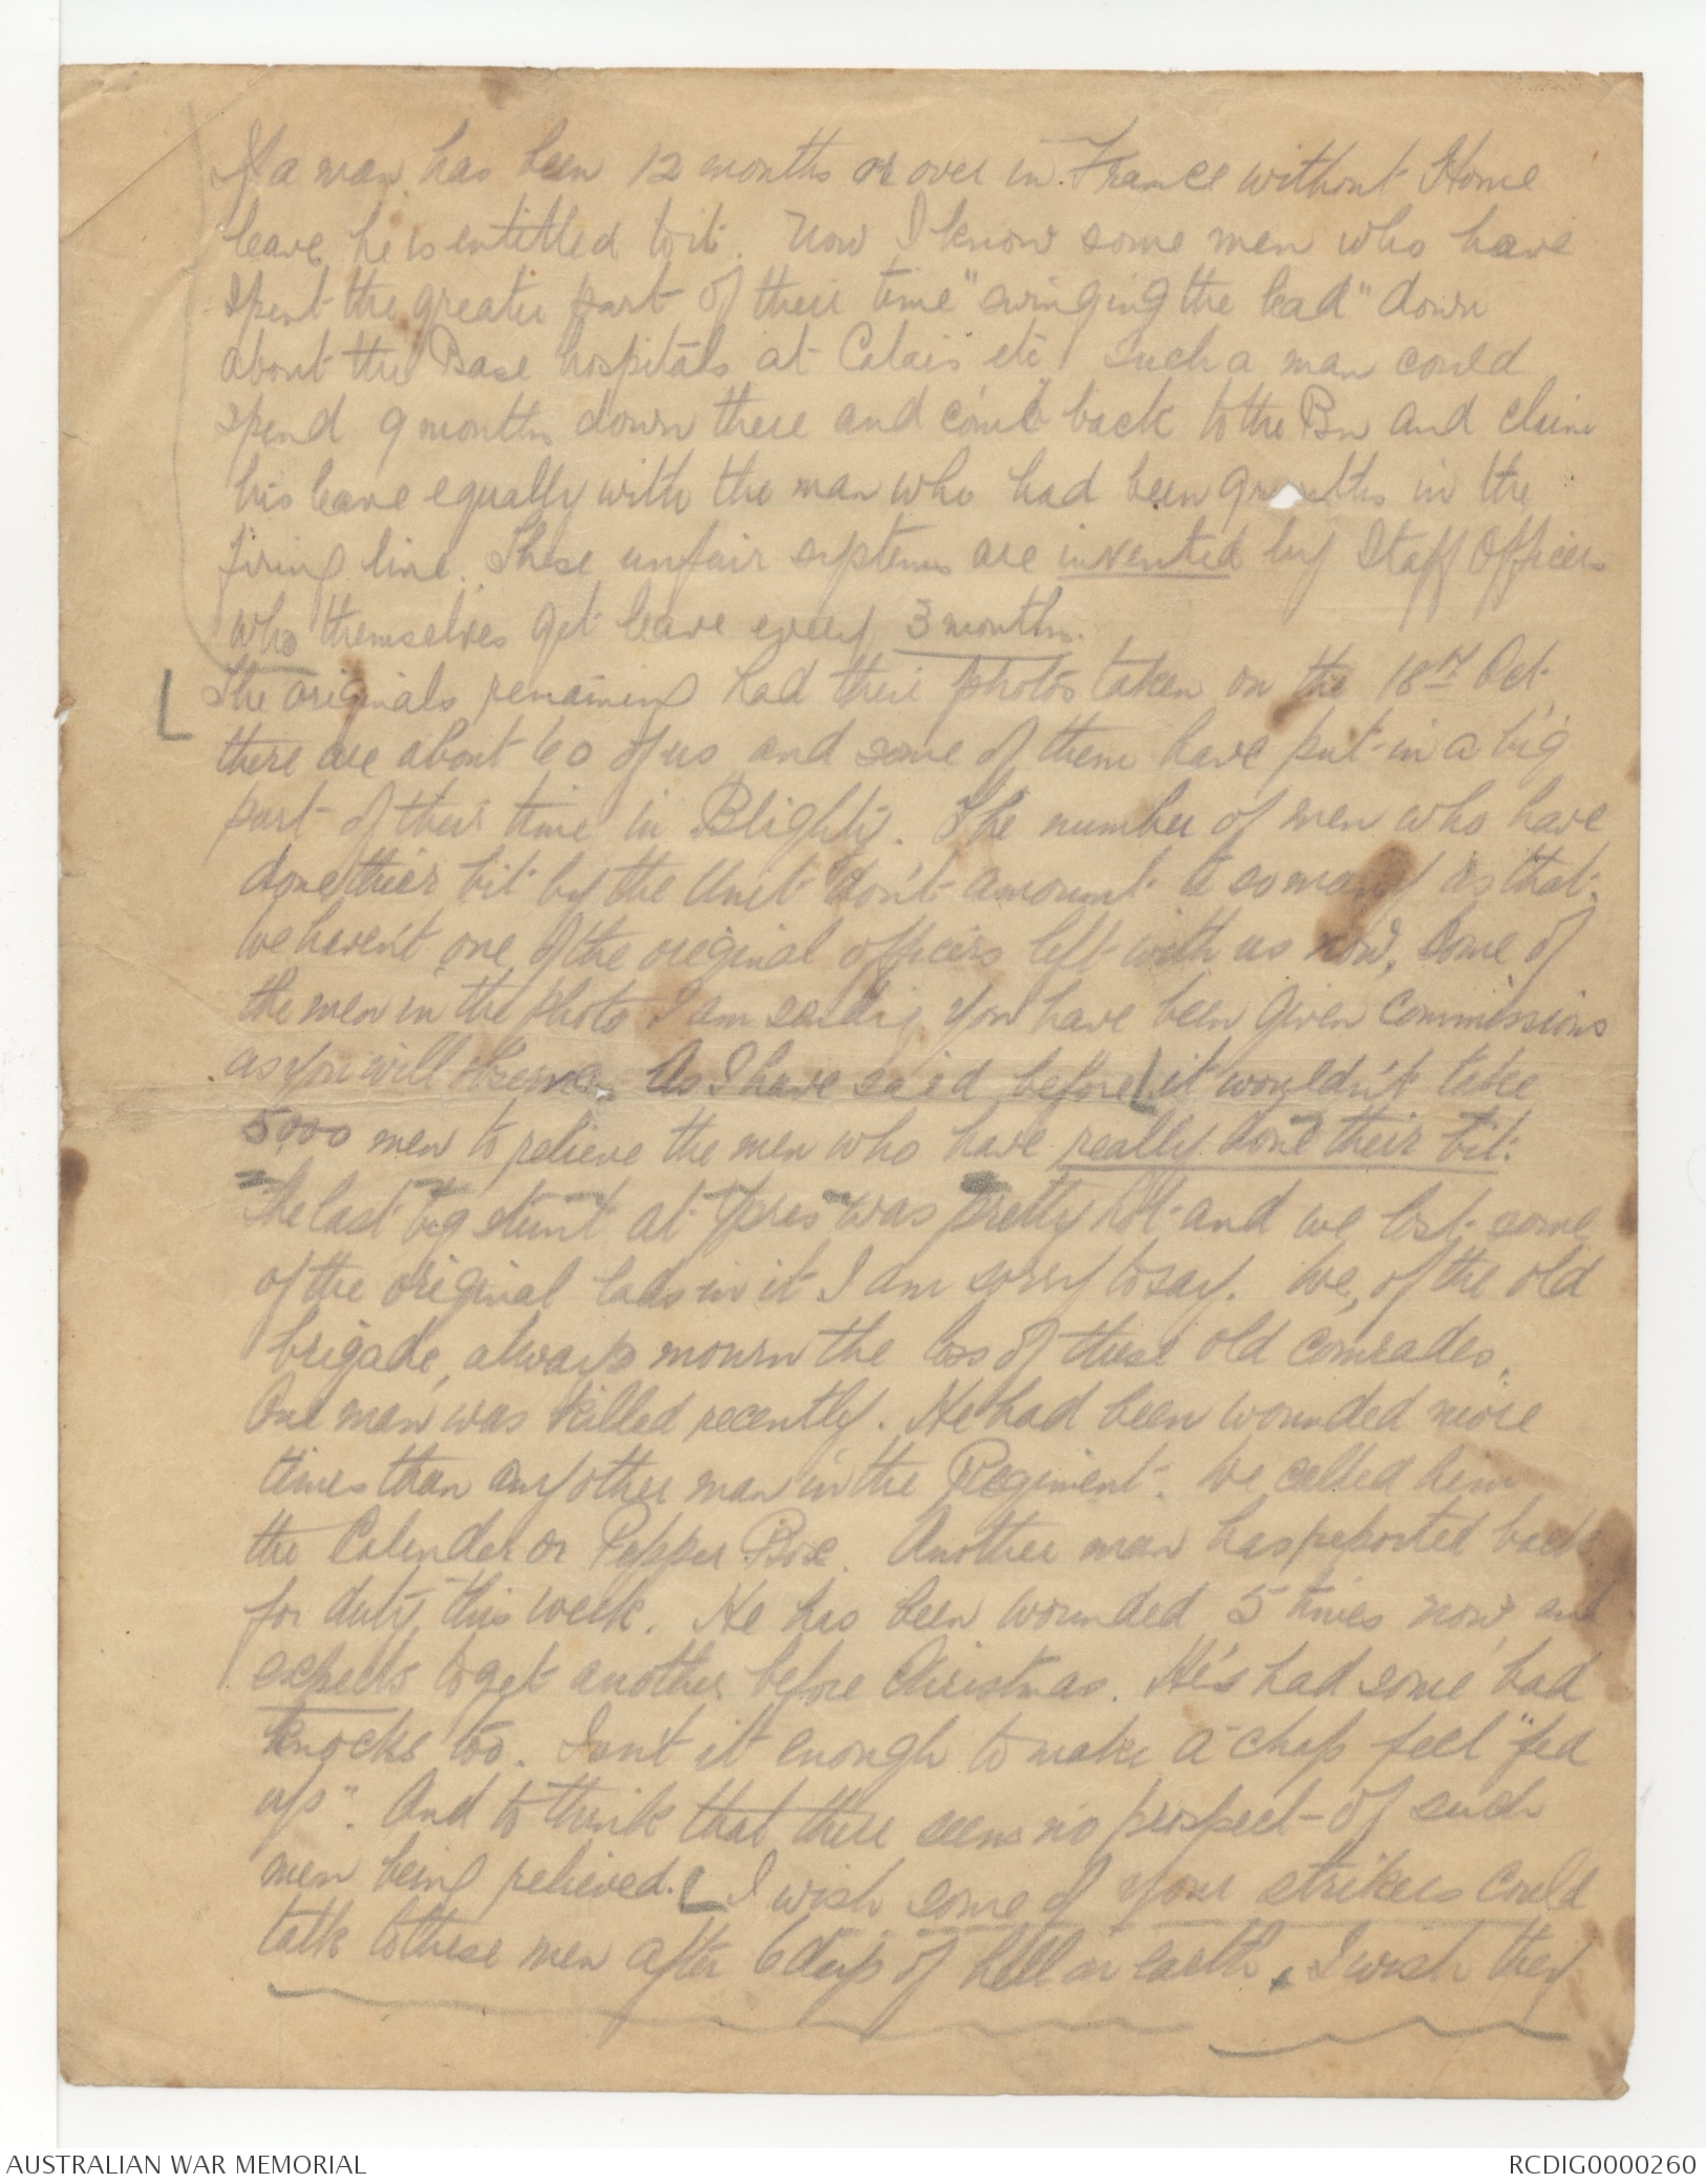 If a man has been 12 months or over in France without Home
leave he is entitled to it. Now I know some men who have
spent the greater part of their time "swinging the lead" down
about the Base hospitals at Calais etc. Such a man could
spend 9 months down there and come back to the Bn and claim
his leave equally with the man who had been 9 months in the
firing line. These unfair systems are invented by Staff Officers
who themselves get leave every 3 months.
The originals remaining had their photos taken on the 18th Oct
there are about 60 of us and some of them have put in a big
part of their time in Blighty. The number of men who have
done their bit by the Unit don't amount to so many as that.
We haven't one of the original officers left with us now, some of
the men in the photo I am sending you have been given commissions
as you will observe. As I have said before it wouldn't take
5,000 men to relieve the men who have really done their bit.
The last big stunt at Ypres was pretty hot and we lost some
of the original lads in it I am sorry to say. We, of the old
brigade, always mourn the loss of these old comrades.
One man was killed recently. He had been wounded more
times than any other man in the Regiment. We called him
the Calender or Pepper Box. Another man has reported back
for duty this week. He has been wounded 5 times now and
expects to get another before Christmas. He's had some bad
knocks too. Isn't it enough to make a chap feel "fed
up". And to think that there seems no prospect of such
men being relieved. I wish some of your strikers could
talk to these men after 6 days of hell on earth. I wish they
AUSTRALIAN WAR MEMORIAL
RCDIG0000260